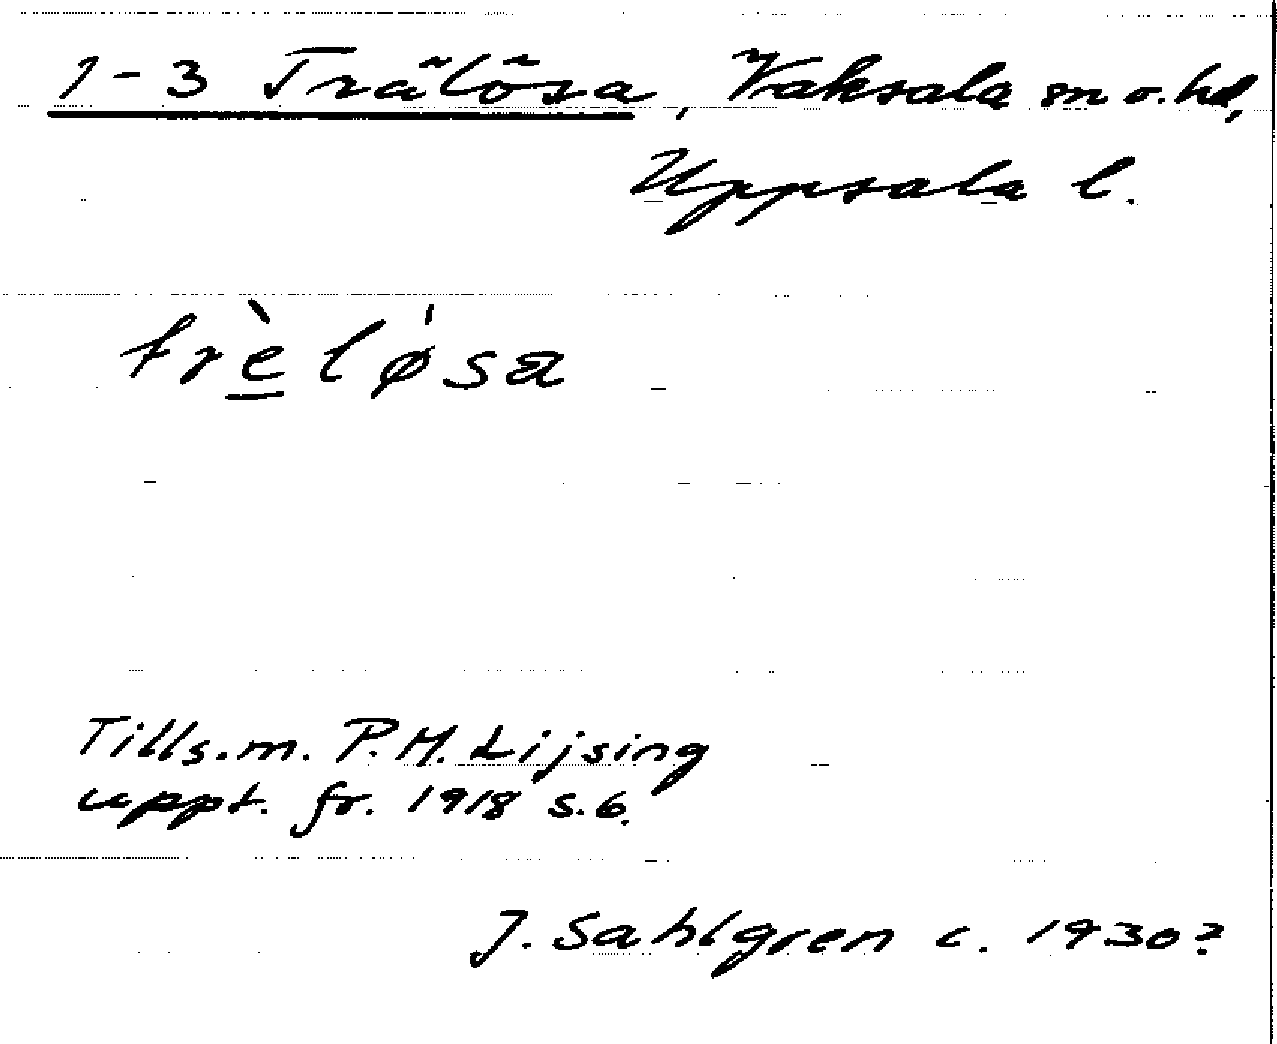 1-3 Trälösa, Vaksala sn o. hd,
Uppsala l.
trèløsa
Tills. m. P.H. Lijsing
uppt. fr. 1918 s. 6.
J. Sahlgren c. 1930?